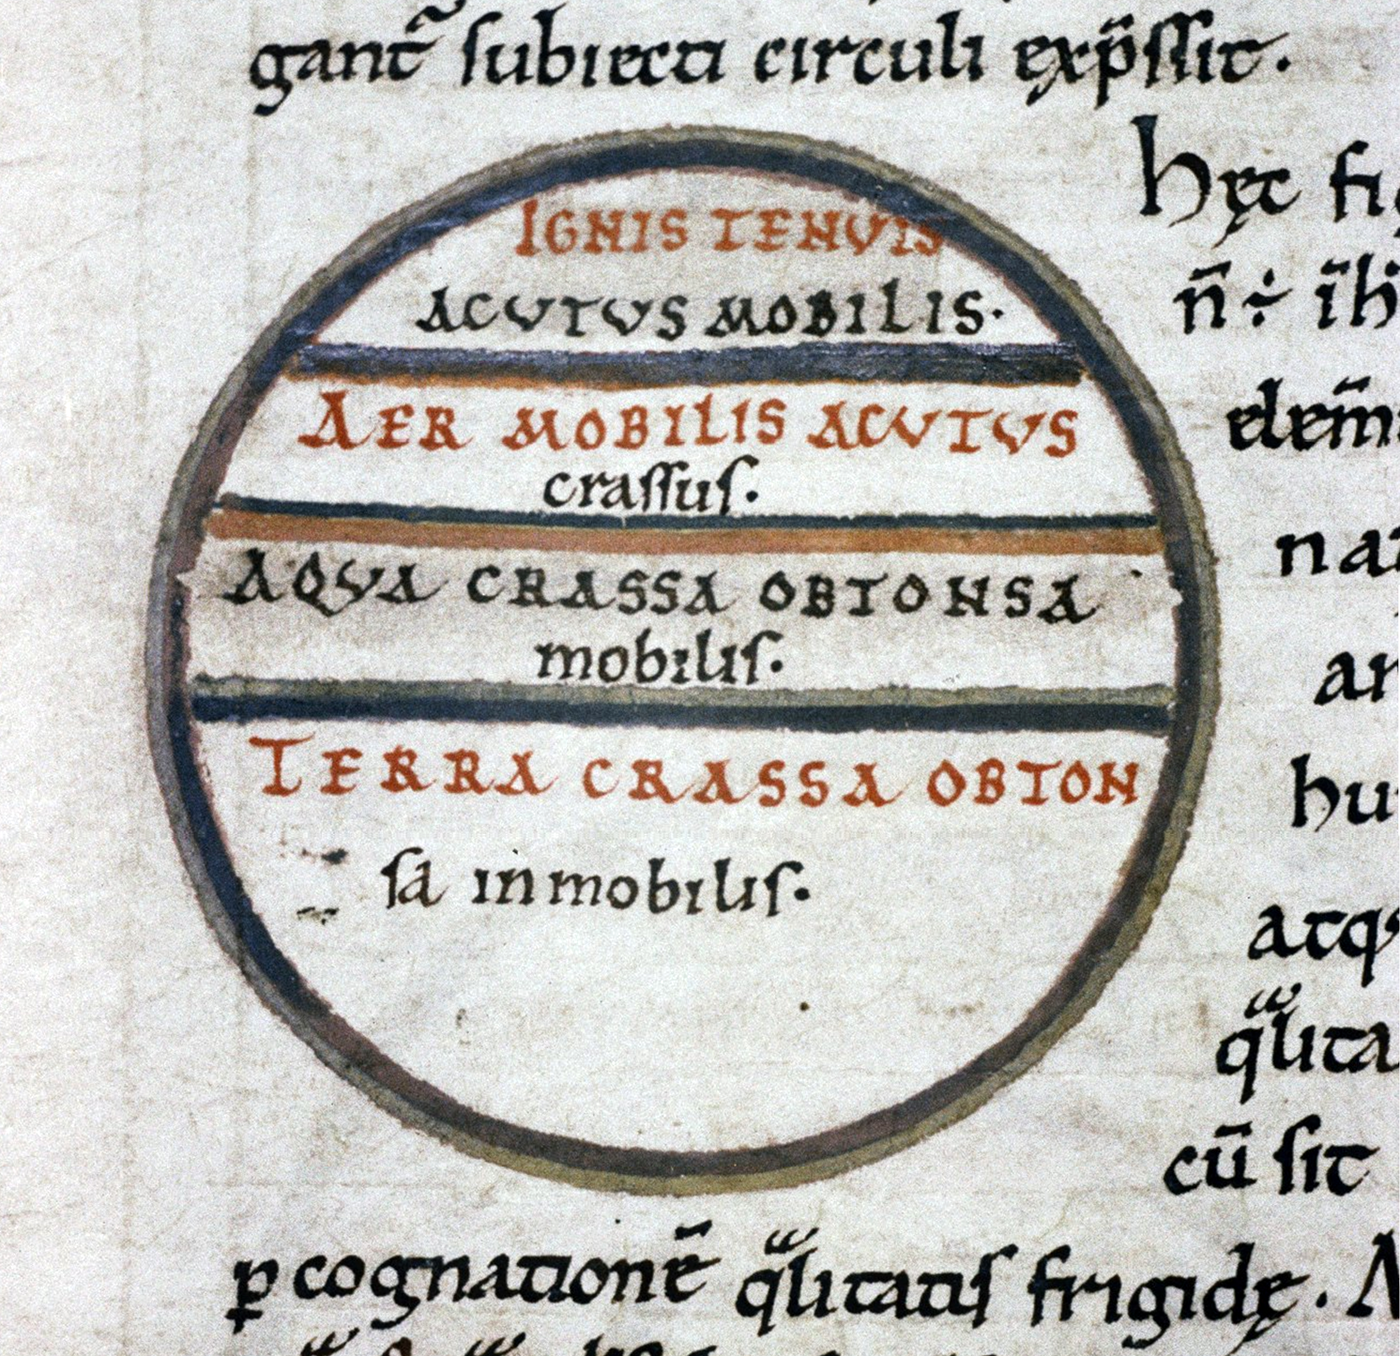 gant᷑ subiecti circuli exp̄ssit.
IGNIS TENVIS
ACVTVS MOBILIS.
AER MOBILIS ACVTVS
crassus.
AQVA CRASSA OBTONSA
mobilis.
TERRA CRASSA OBTON
sa inmobilis.
hęc fi
n̄ ÷ īh
elem̄
na
ar
hu
atq
q̄lita
cū sit
p cognationē q̄litatis frigidę. A